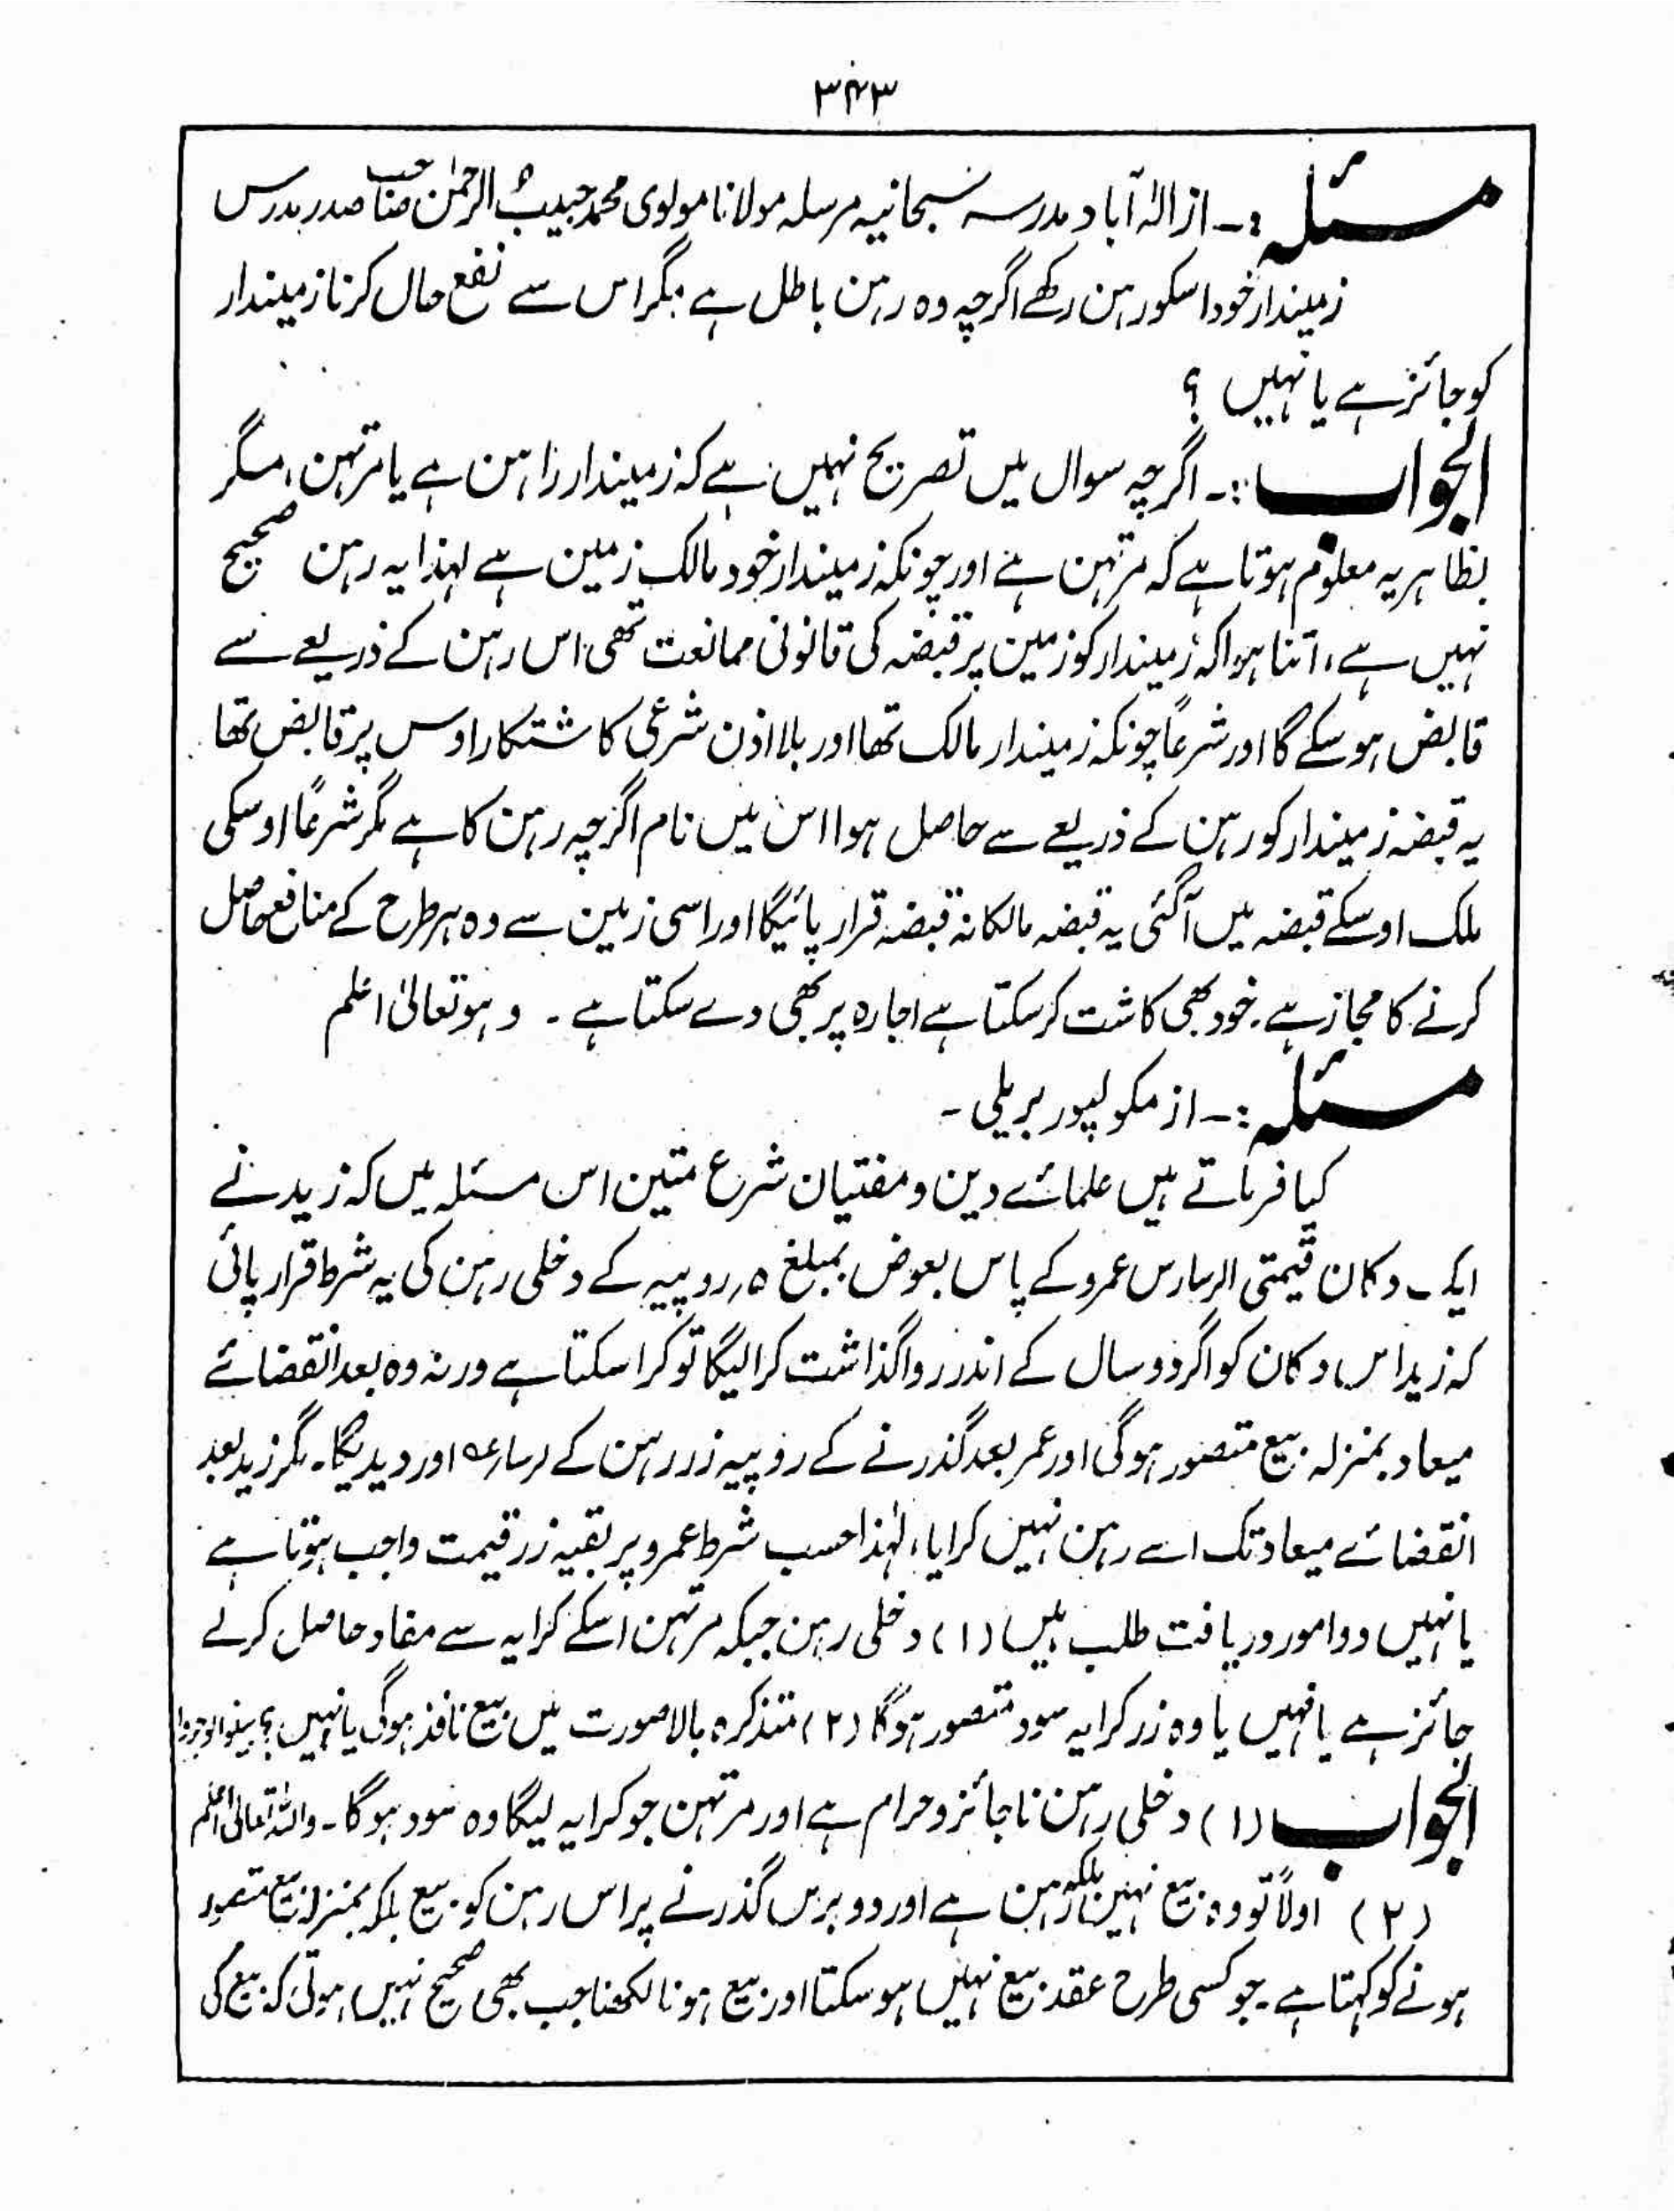 ۳۴۳
مسئلہ :۔ از الہٰ آباد مدرسہ سبحانیہ مرسلہ مولانا مولوی محمد حبیب الرحمٰن صاحب صدر مدرس
زمیندار خود اسکو رہن رکھے اگرچہ وہ رہن باطل ہے مگر اس سے نفع حال کرنا زمیندار
کو جائز ہے یا نہیں ؟
الجواب :۔ اگرچہ سوال میں تصریح نہیں ہے کہ زمیندار راہن ہے یا مرتہن، مگر
بظاہر یہ معلوم ہوتا ہے کہ مرتہن ہے اور چونکہ زمیندار خود مالک زمین ہے لہذا یہ رہن صحیح
نہیں ہے، اتنا ہوا کہ زمیندار کو زمین پر قبضہ کی قانونی ممانعت تھی اس رہن کے ذریعے سے
قابض ہو سکے گا اور شرعاً چونکہ زمیندار مالک تھا اور بلا اذن شرعی کاشتکار اوس پر قابض تھا
یہ قبضہ زمیندار کو رہن کے ذریعے سے حاصل ہوا اس میں نام اگرچہ رہن کا ہے مگر شرعاً اوسکی
ملک اوسکے قبضہ میں آگئی یہ قبضہ مالکانہ قبضہ قرار پائیگا اور اسی زمین سے وہ ہر طرح کے منافع حاصل
کرنے کا مجاز ہے۔ خود بھی کاشت کر سکتا ہے اجارہ پر بھی دے سکتا ہے ۔ وہو تعالیٰ اعلم
مسئلہ :۔ از مکولپور بریلی ۔
کیا فرماتے ہیں علمائے دین و مفتیان شرع متین اس مسئلہ میں کہ زید نے
ایک دکان قیمتی عمرو کے پاس بعوض بمبلغ روپیہ کے دخلی رہن کی یہ شرط قرار پائی
کہ زید اس دکان کو اگر دو سال کے اندر رواگذاشت کرالیگا تو کرا سکتا ہے ورنہ وہ بعد انقضائے
میعاد بمنزلہ بیع متصور ہوگی اور عمر بعد گذرنے کے روپیہ زر رہن کے اور دیدیگا۔ مگر زید بعد
انقضائے میعاد تک اسے رہن نہیں کرایا، لہٰذا حسب شرط عمرو پر بقیہ زر قیمت واجب ہوتا ہے
یا نہیں دو امور دریافت طلب ہیں (۱) دخلی رہن جبکہ مرتہن اسکے کرایہ سے مفاد حاصل کرے
جائز ہے یا نہیں یا وہ زر کرایہ سود متصور ہوگا (۲) متذکرہ بالا صورت میں بیع نافذ ہوگی یا نہیں ؟ بینوا توجروا
الجواب (۱) دخلی رہن ناجائز و حرام ہے اور مرتہن جو کرایہ لیگا وہ سود ہوگا ۔ واللہ تعالیٰ اعلم
(۲) اولاً تو وہ بیع نہیں بلکہ رہن ہے اور دو برس گذرنے پر اس رہن کو بیع بلکہ بمنزلہ بیع متصور
ہونے کو کہتا ہے ۔ جو کسی طرح عقد بیع نہیں ہو سکتا اور بیع ہونا لکھنا جب بھی صحیح نہیں ہوتی کہ بیع کی